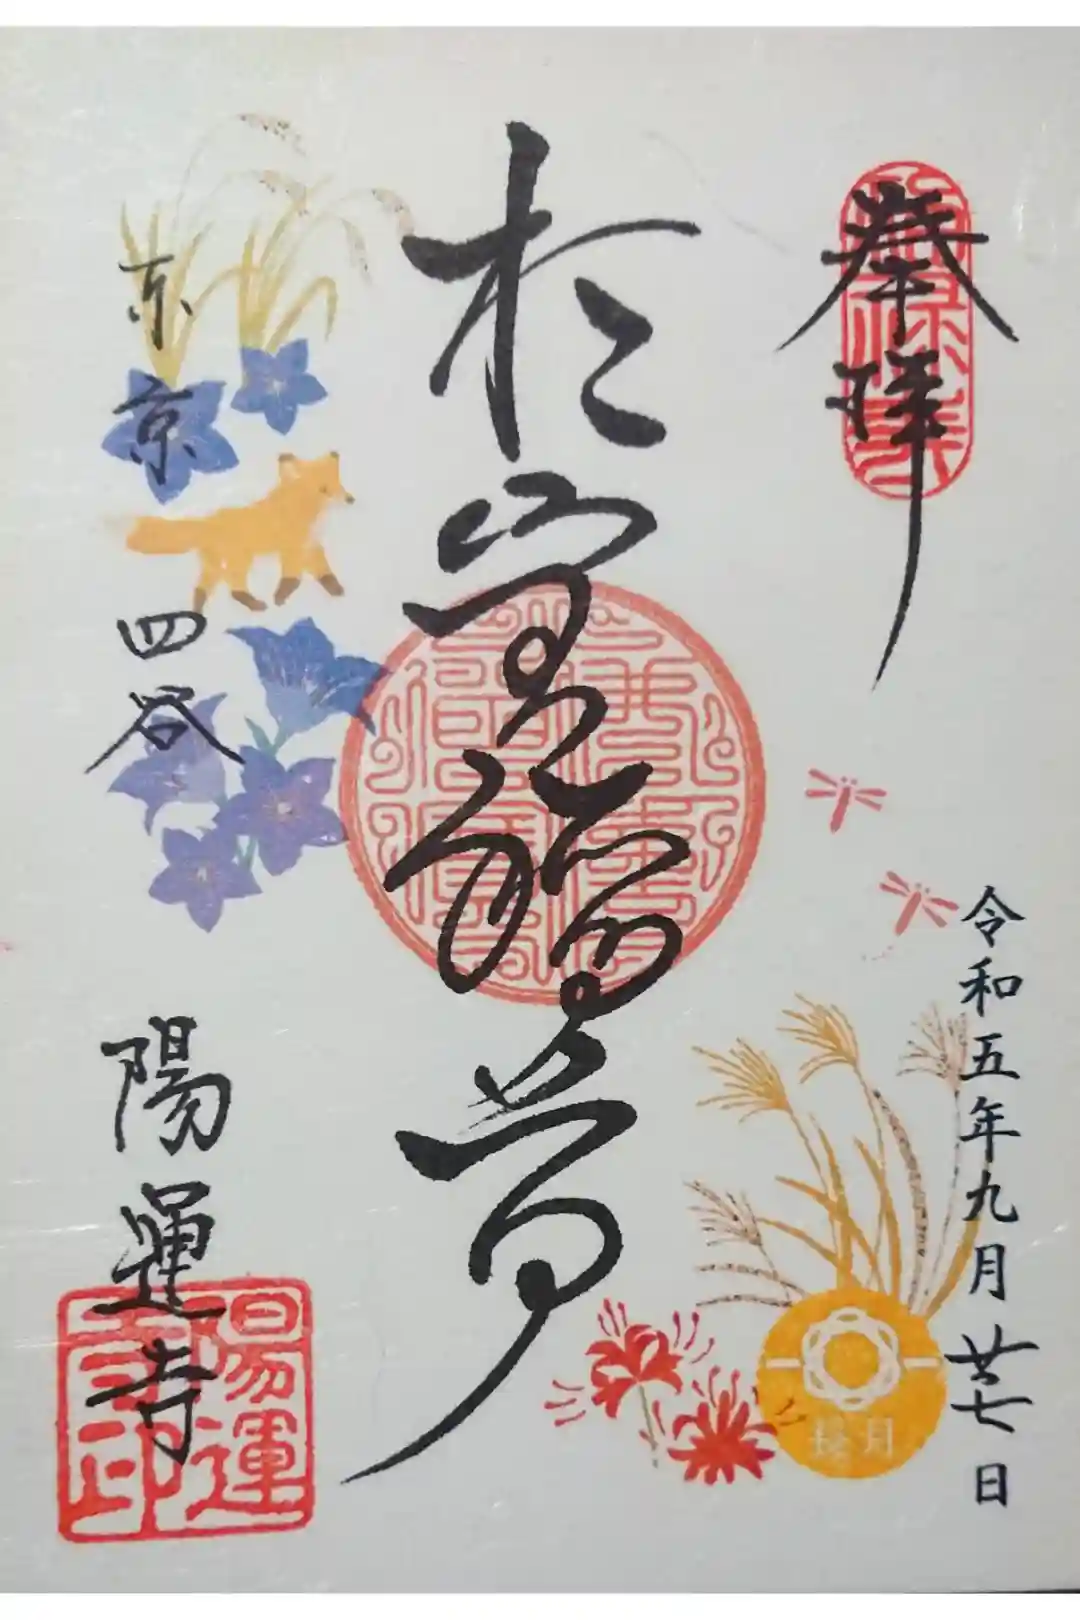 奉拝
令和五年九月廿七日
於岩稲荷
東京 四谷 陽運寺
陽運寺印
長月